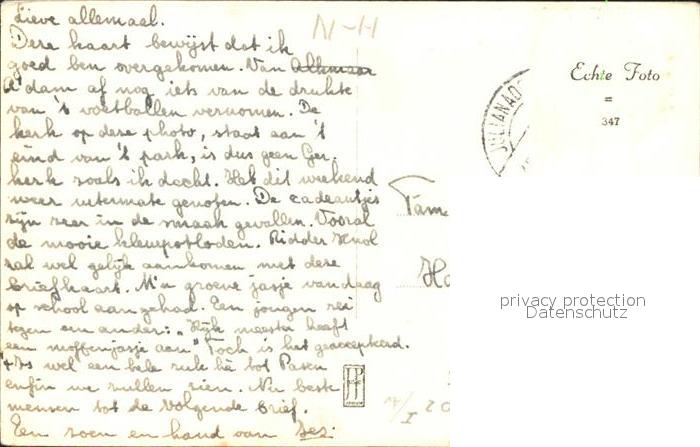 Lieve allemaal.
Deze kaart bewijst dat ik
goed ben overgekomen. Van Alkmaar
A'dam af nog iets van de drukte
van 't voetballen vernomen. De
kerk op deze photo, staat aan 't
eind van 't park, is dus geen Ger.
kerk zoals ik dacht. Heb dit weekend
weer uitermate genoten. De cadeautjes
zijn zeer in de smaak gevallen. Vooral
de mooie kleurpotloden. Ridder Knol
zal wel gelijk aankomen met deze
briefkaart. M'n groene jasje vandaag
op school aangehad. Een jongen zei
tegen een ander: "Kijk meester heeft
een moffenjasje aan" Toch is het geaccepteerd.
't Is wel een hele ruk hè tot Pasen
enfin we zullen zien. Nu beste
mensen tot de volgende brief.
Een zoen en hand van
N-H
Echte Foto
=
347
JULIANAD
Fam
privacy protection
Datenschutz
JP